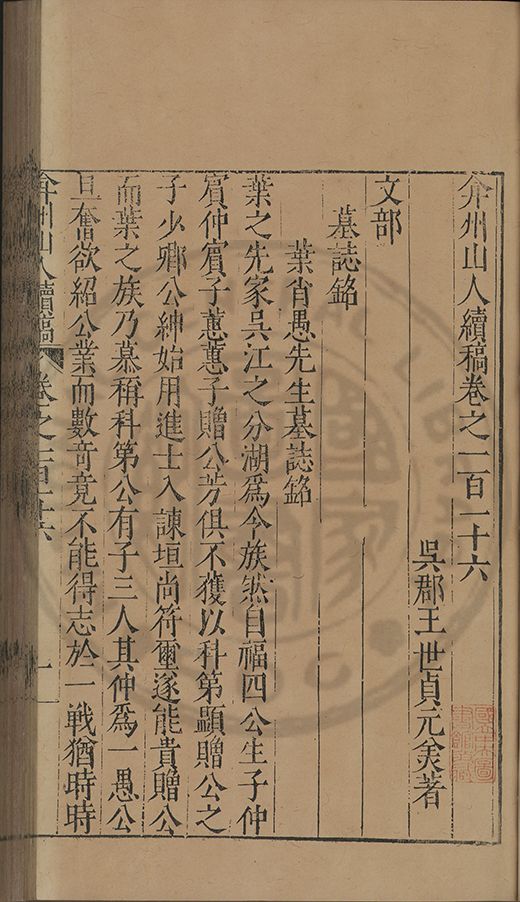 弇州山人續稿卷之一百一十六
吳郡王世貞元美著
文部
墓誌銘
葉省愚先生墓誌銘
葉之先家吳江之分湖爲令族然自福四公生子仲
賓仲賓子蕙蕙子贈公芳俱不獲以科第顯贈公之
子少卿公紳始用進士入諫垣尚符璽遂能貴贈公
而葉之族乃慕稱科第公有子三人其仲爲一愚公
旦奮欲紹公業而數竒竟不能得志於一戰猶時時
弇州山人續稿 卷之一百十六 一